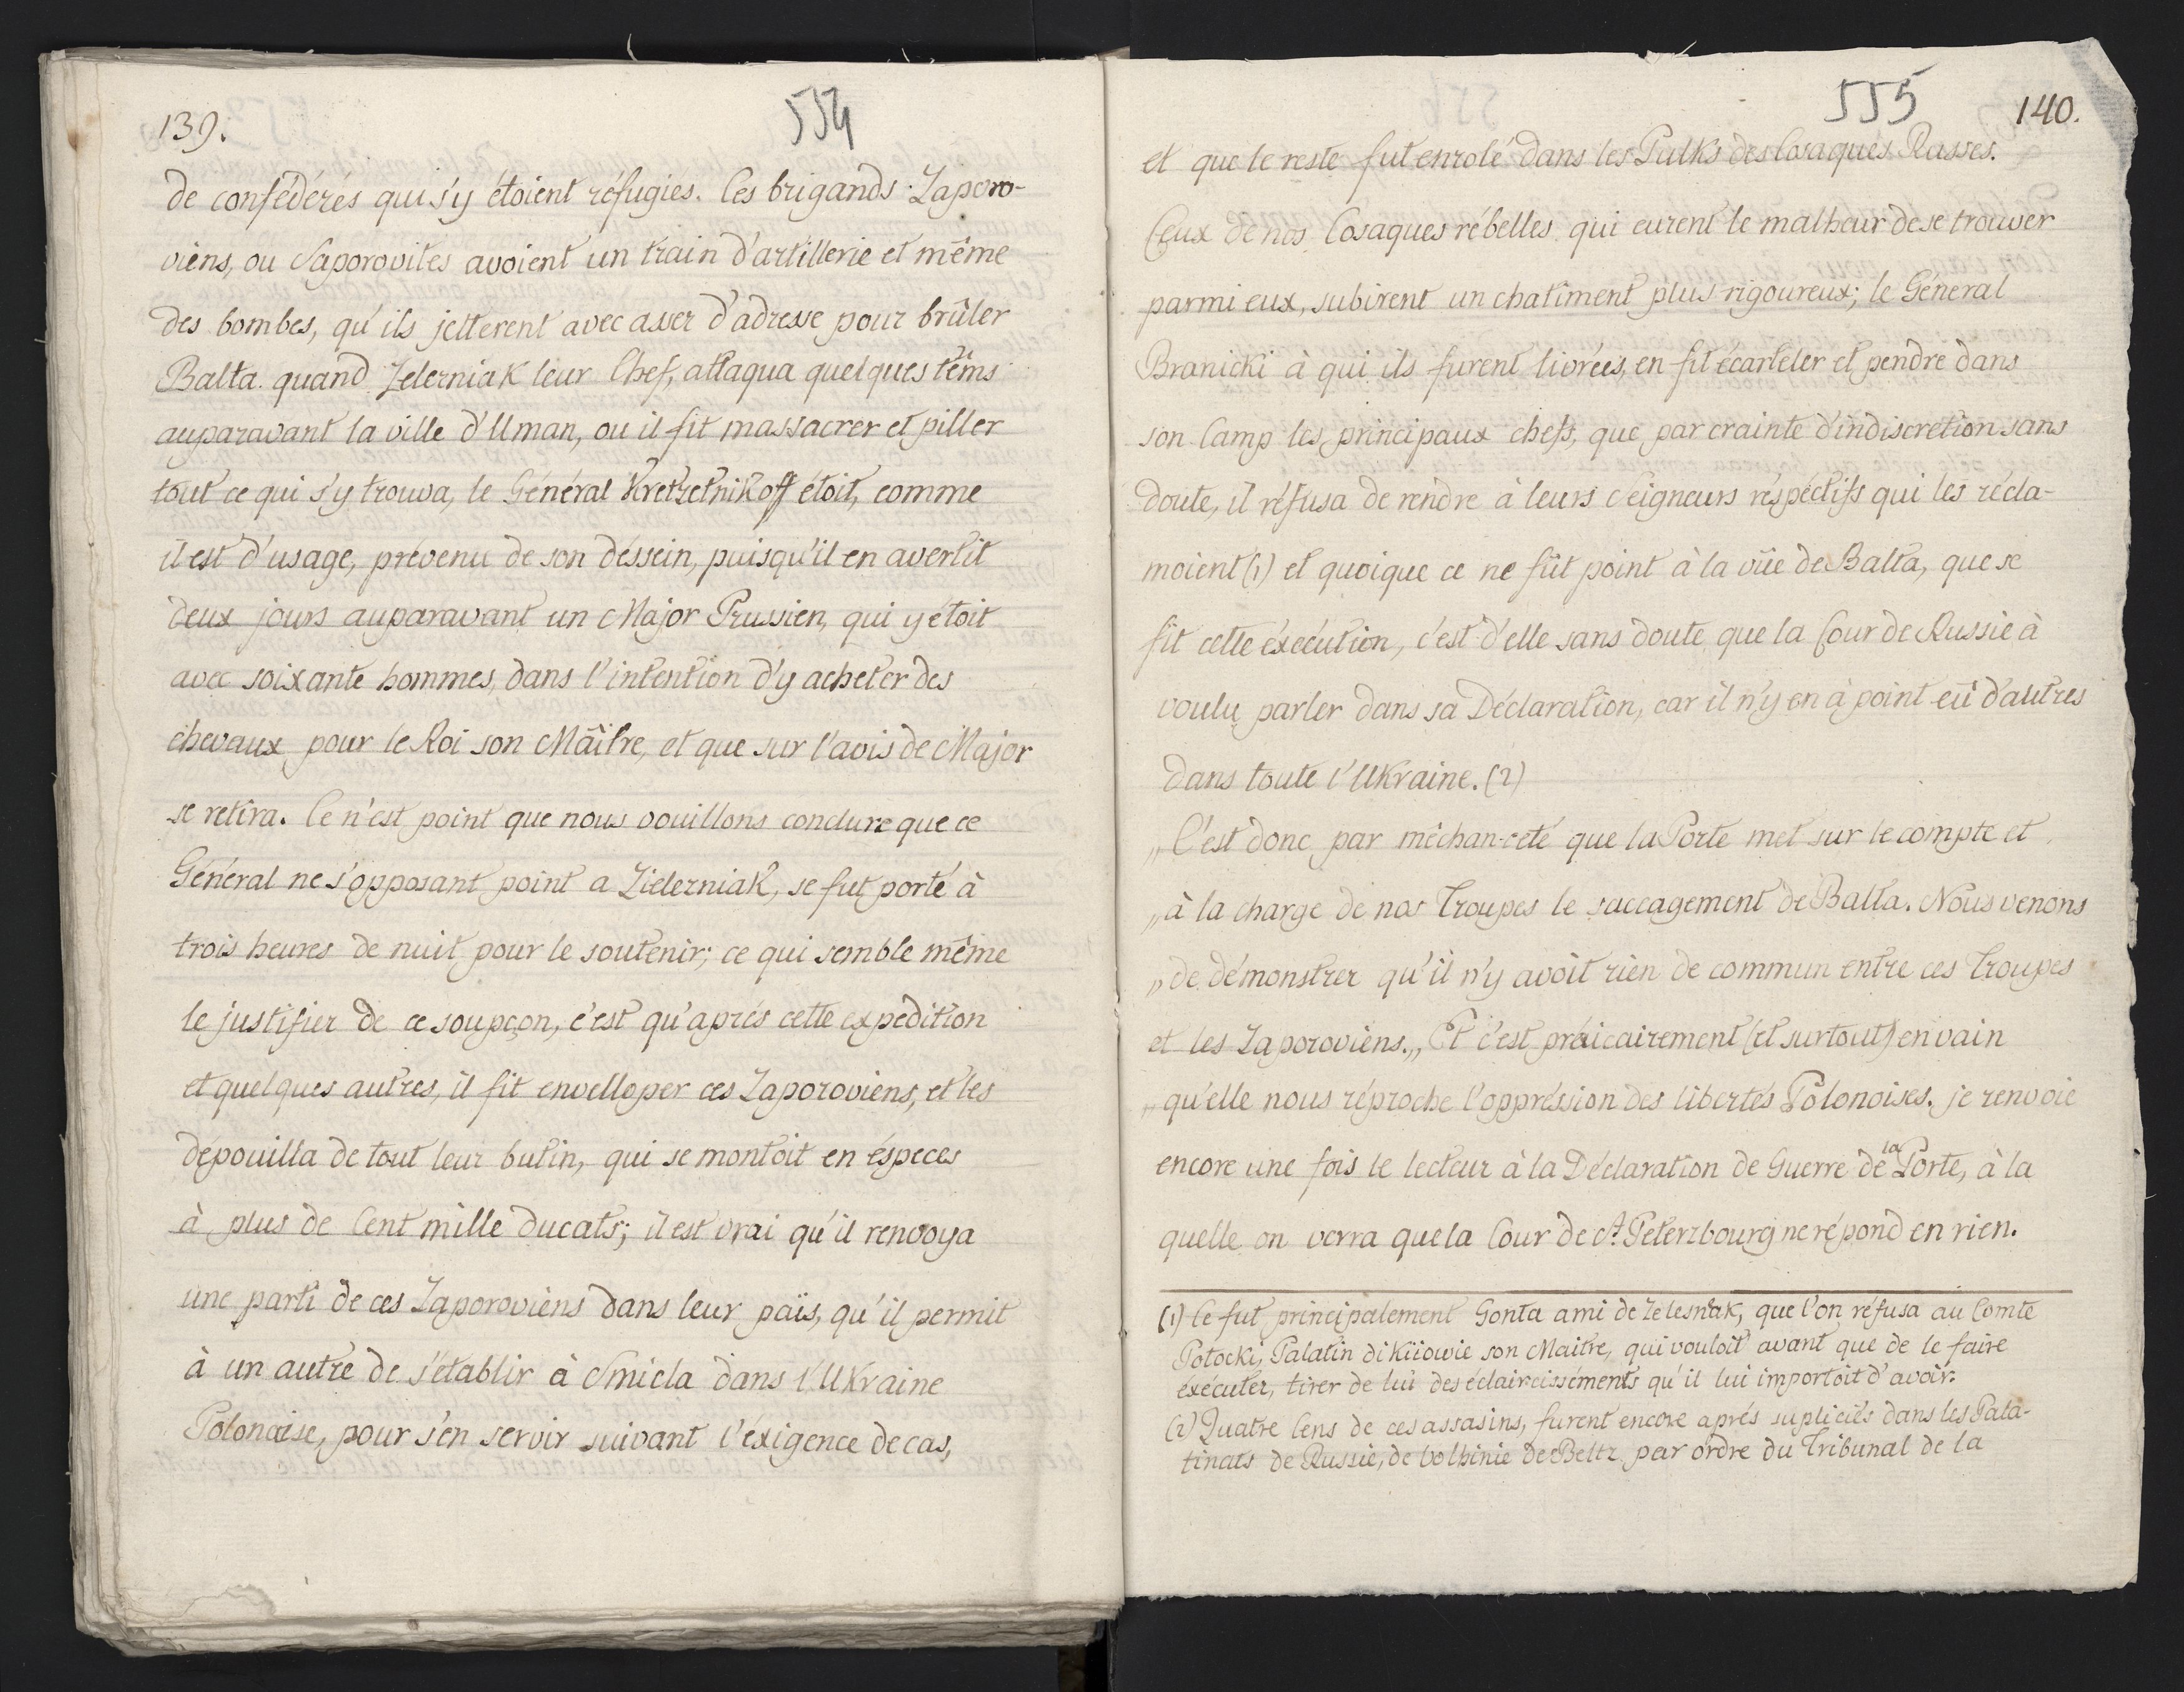 139.
554
de confédérés qui s'y étoient réfugiés. Ces brigands Zaporo-
viens, ou Saporovites avoient un train d'artillerie et même
des bombes, qu'ils jetterent avec assez d'adresse pour brûler
Balta. quand Zelezniak leur Chef, attaqua quelques têms
auparavant la ville d'Uman, ou il fit massacrer et piller
tout ce qui s'y trouva, le Général Kretzetnikoff étoit, comme
il est d'usage, prévenu de son déssein, puisqu'il en avertit
deux jours auparavant un Major Prussien, qui y étoit
avec soixante hommes, dans l'intention d'y acheter des
chevaux pour le Roi son Maître, et que sur l'avis de Major
se retira. Ce n'est point que nous vouillons conclure que ce
Général ne s'opposant point a Zielezniak, se fut porté à
trois heures de nuit pour le soutenir; ce qui semble même
le justifier de ce soupçon, c'est qu'aprés cette expedition
et quelques autres, il fit envelloper ces Zaporoviens, et les
dépouilla de tout leur butin, qui se montoit en éspeces
à plus de Cent mille Ducats; il est vrai qu'il renvoya
une parti de ces Zaporoviens dans leur païs, qu'il permit
à un autre de s'établir à Smiela dans l'Ukraine
Polonaise, pour s'en servir suivant l'éxigence de cas,
555
140.
et que le reste fut enrolé dans les Pulks des Cosaques Russes.
Ceux de nos Cosaques rébelles qui eurent le malheur de se trouver
parmi eux, subirent un chatiment plus rigoureux; le Géneral
Branicki à qui ils furent livrées, en fit écarteler et pendre dans
son Camp les principaux chefs, que par crainte d'indiscretion sans
doute, il réfusa de rendre à leurs Seigneurs réspéctifs qui les récla-
moient (1) et quoique ce ne fût point à la vûe de Balta, que se
fit cette éxecution, c'est d'elle sans doute que la Cour de Russie à
voulu parler dans sa Déclaration, car il n'y en à point eû d'autres
dans toute l'Ukraine. (2)
„C'est donc par méchan-ceté que la Porte met sur le compte et
„à la charge de nos Troupes le saccagement de Balta. Nous venons
„de démonstrer qu'il n'y avoit rien de commun entre ces Troupes
et les Zaporoviens.„ Et c'est précairement (et surtout) en vain
„qu'elle nous réproche l'oppréssion des libertés Polonoises. je renvoie
encore une fois le lecteur à la Déclaration de Guerre de la Porte, à la
quelle on verra que la Cour de St. Peterzbourg ne répond en rien.
(1) Ce fut principalement Gonta ami de Zelesniak, que l'on réfusa au Comte
Potocki, Palatin di Kiiowie son Maitre, qui vouloit avant que de le faire
éxécuter, tirer de lui des éclaircissements qu'il lui importoit d'avoir.
(2) Quatre Cens de ces assasins, furent encore aprés supliciés dans les Pala-
tinats de Russie, de Volhinie de Beltz par ordre du Tribunal de la